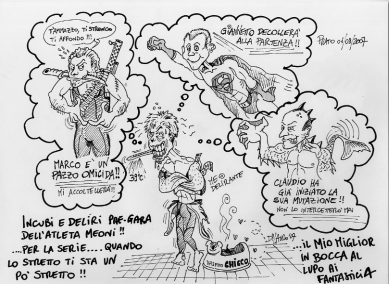 T'AMMAZZO, TI STRONCO
TI AFFONDO !!!
GIANNETO DECOLLERÀ
ALLA PARTENZA !!
MARCO E' UN
PAZZO OMICIDA !!
MI ACCOLTELLERÀ !!
39°C
ME
DELIRANTE
CLAUDIO HA
GIÀ INIZIATO LA
SUA MUTAZIONE !!
NON LO INTERCETTO MAI
CHICCO
INCUBI E DELIRI PRE-GARA
DELL'ATLETA MEONI !!
...PER LA SERIE.... QUANDO
LO STRETTO TI STA UN
PO' STRETTO !!
...IL MIO MIGLIOR
IN BOCCA AL
LUPO AI
FANTASTICI 4